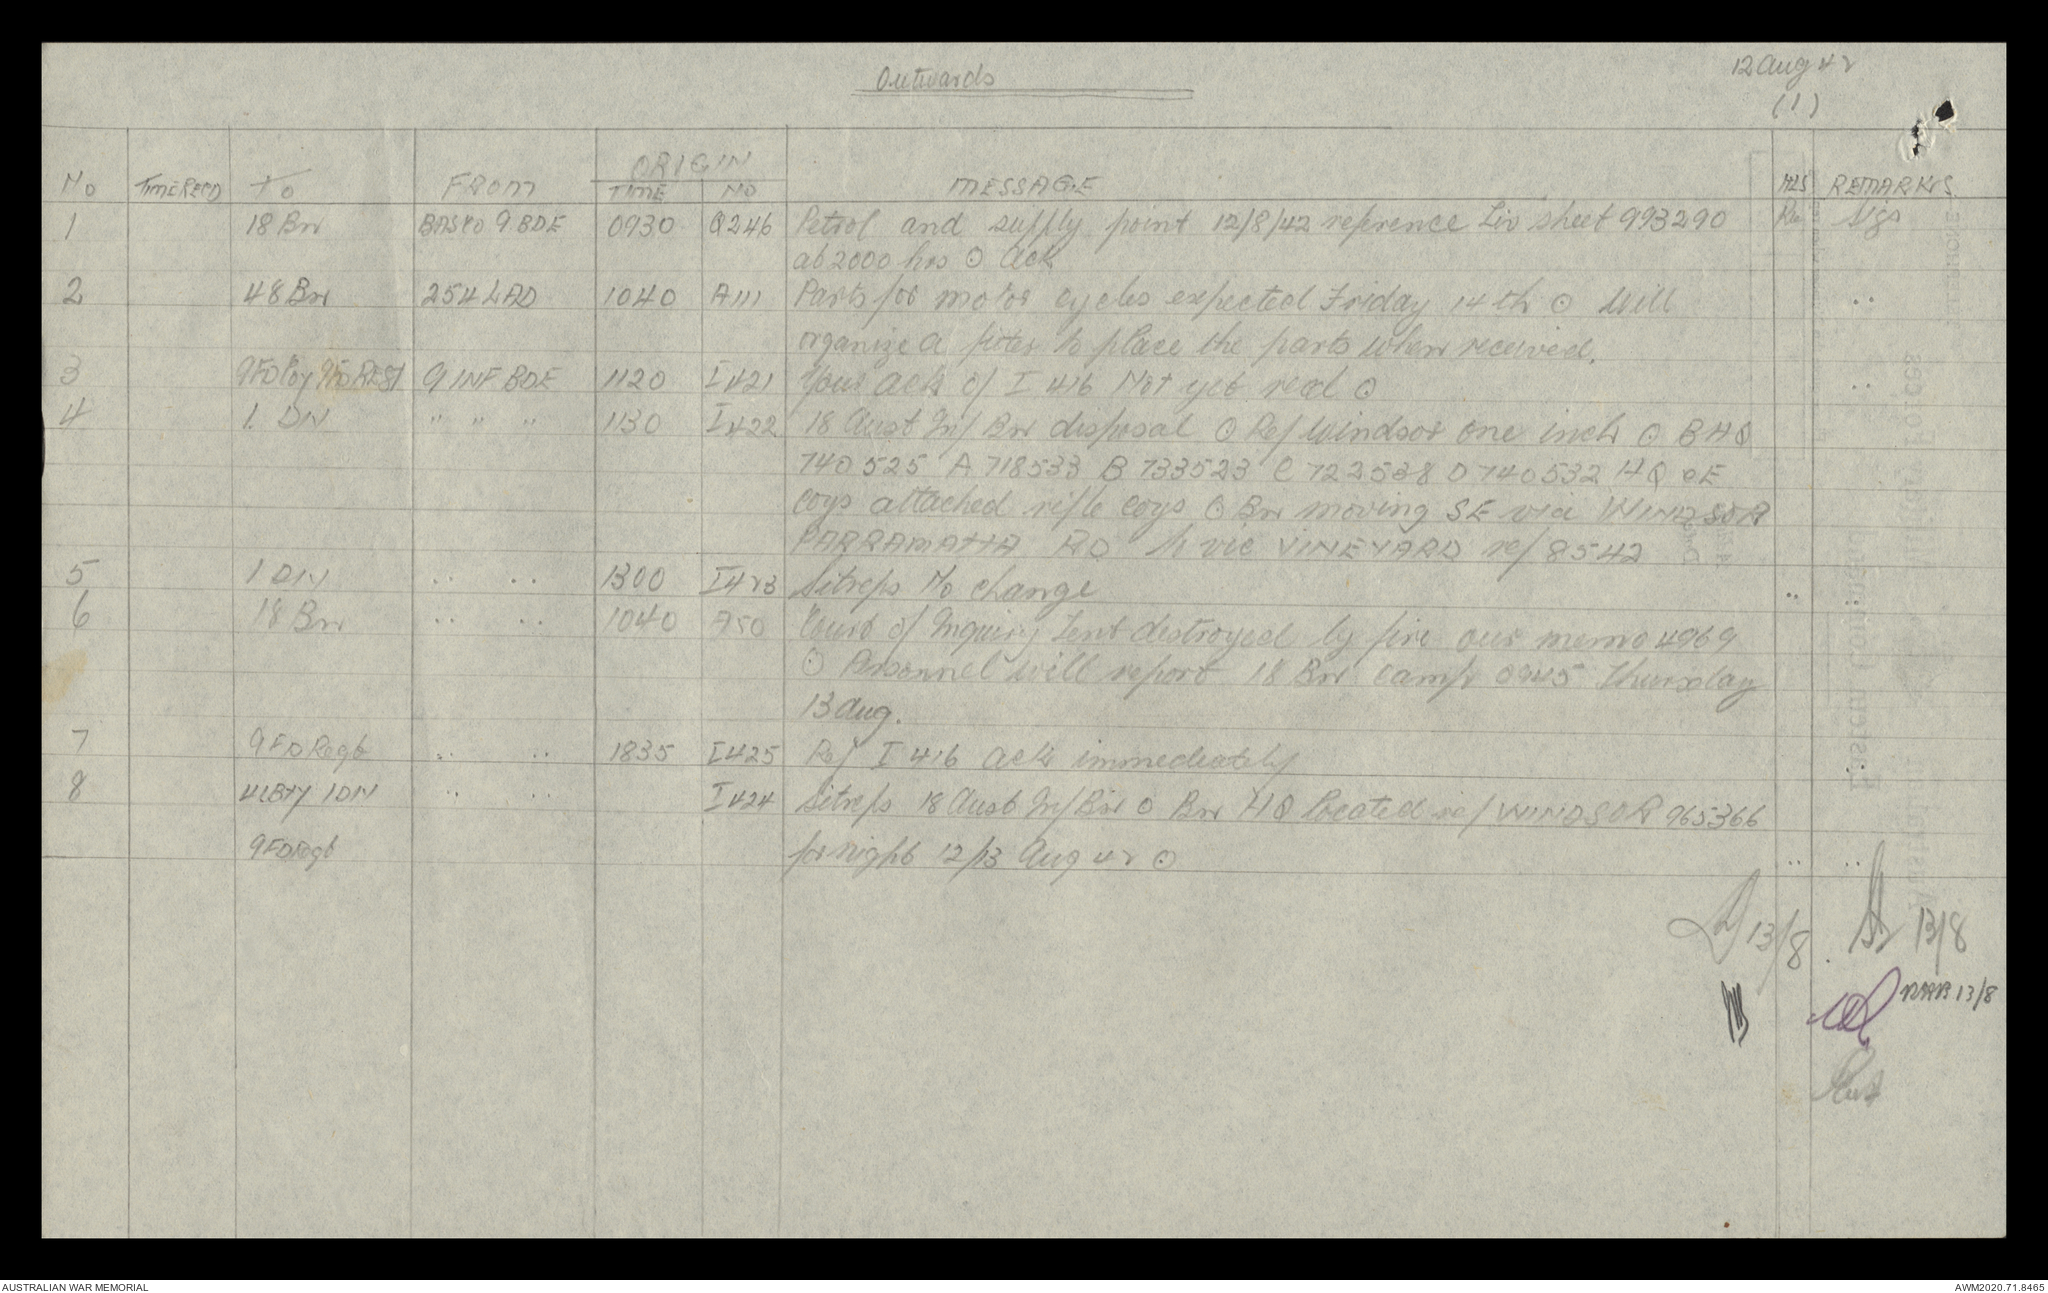 Outwards
12 Aug 42
(1)
No TIME RECD To FROM ORIGIN TIME NO MESSAGE REMARKS
1 18 Bn BASCO 9 BDE 0930 Q246 Petrol and supply point 12/8/42 reference Liv sheet 993290 Sigs
at 2000 hrs ⊙ Ack
2 48 Bn 254 LAD 1040 A111 Parts for motor cycles expected Friday 14th ⊙ Will ..
organize a fitter to place the parts when received.
3 9 FD Coy 9 FD REGT 9 INF BDE 1120 I 421 Your ack of I 416 Not yet recd ⊙ ..
4 1. DN " " " 1130 I 422 18 Aust Inf Bn disposal ⊙ Ref Windsor one inch ⊙ BHQ
740525 A 718533 B 733523 C 722538 D 740532 HQ & E
coys attached rifle coys ⊙ Bn moving SE via WINDSOR
PARRAMATTA RD to vic VINEYARD ref 8542
5 1 DN .. .. 1300 I423 Sitreps No change ..
6 18 Bn .. .. 1040 A50 Court of Inquiry Tent destroyed by fire our memo 4969
⊙ Personnel will report 18 Bn camp 0945 Thursday
13 Aug.
7 9 FD Regt .. .. 1835 I425 Ref I 416 ack immediately
8 1 DN .. .. I424 Sitreps 18 Aust Inf Bn ⊙ Bn HQ located ref WINDSOR 965366
9 FD Regt for night 12/13 Aug 42 ⊙ .. ..
13/8 13/8
13/8
AUSTRALIAN WAR MEMORIAL AWM2020.71.8465